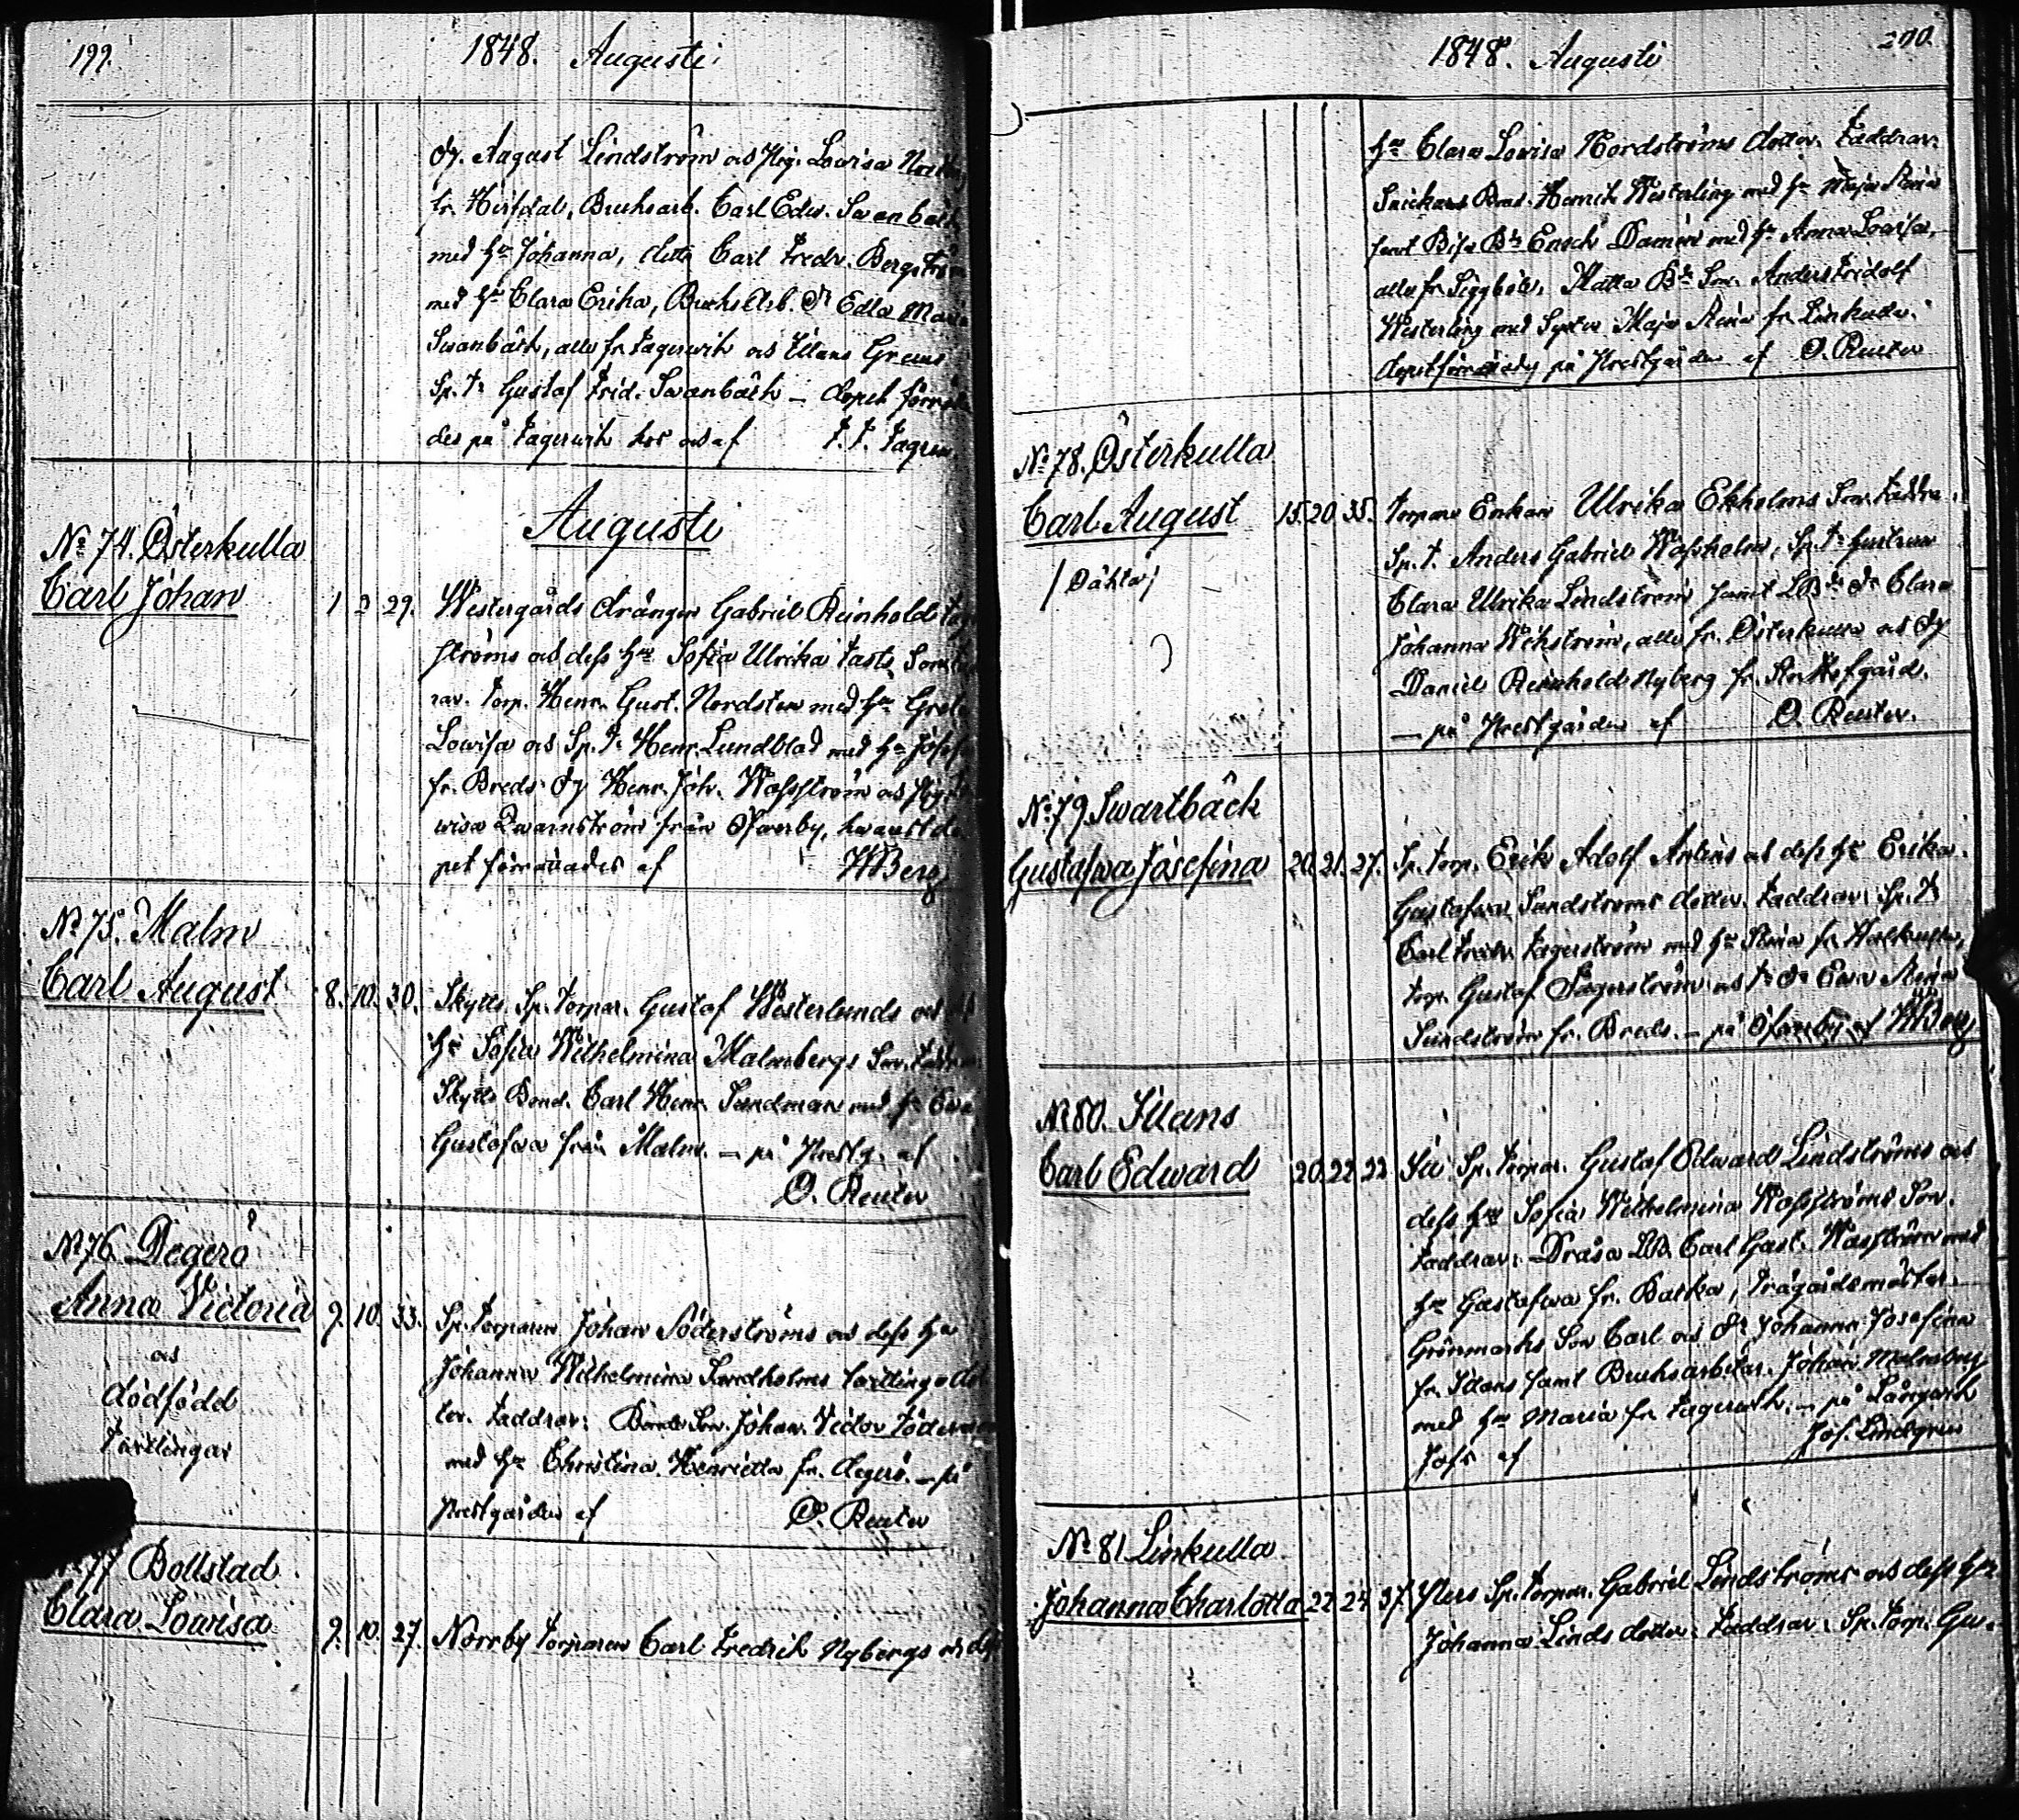 199.
1848. Augusti
Dr. August Lindström och Pig. Lowisa
fr. Kirjdal, Bruksarb. Carl Edw. Swanbäck
med Hu Johanna, ditto Carl Fredr. Bergström
med Hu Clara Erika, Bruks Arb. Dr Edla Maria
Swanbäck, alla fr. Fagerwik och Illans
Sp. T. Gustaf Frid. Swanbäck — Dopet förrätta
des på Fagerwik hos och af F. F.
Augusti
No 74. Österkulla
Carl Johan
1 2 29. Westergårds drängen Gabriel Reinhold
ströms och dess Hu Sofia Ulrika Fasts Son
rar. Torp. Henr. Gust. Nordsten med Hu Greta
Lowisa och Sp. T. Henr. Lundblad med Hu
fr. Breds. Dr Henr. Joh. Wassström och Pig.
wisa Qwarnström från Ofwerby, hwarest do
pet förrättades af HBerg
No 75. Malm
Carl August
8. 10. 30. Skytts Sp. Torpar. Gustaf Westerlunds och
Hu Sofia Wilhelmina Malmbergs Son.
Skytts Bond. Carl Henr. Sundman med Hu Ewa
Gustafwa från Malm. — på Prestg. af
O. Reuter
No 76. Degerö
Anna Victoria
och
dödfödd
Twillingar
9. 10. 33. Sp. Torparen Johan Söderströms och dess Hu
Johanna Wilhelmina Sandholms twilling dot
ter. Faddrar: Bonde Son. Johan Victor
med Hu Christina Henrietta fr. Degerö. — på
Prestgården af O. Reuter
77 Bollstad
Clara Lowisa
9. 10. 27. Norrby Torparen Carl Fredrik Nybergs och dess
1848. Augusti
200.
Hu Clara Lowisa Nordströms dotter. Faddrar:
Snickars Bond. Henrik Westerling med Hu Maja Stina
samt Bisa Bd Enoch Damén med Hu Anna Lowisa,
alla fr. Siggböle, Matta Bd Son. Anders Fridolf
Westerling med Syster Maja Stina fr. Linkulla.
Dopet förrättades på Prestgården af O. Reuter
No 78. Österkulla
Carl August
/Oäkta/
15. 20. 35. Torpare Enkan Ulrika Ekholms Son. Faddra.
Sp. T. Anders Gabriel Wassholm, Sp. T. hustrun
Clara Ulrika Lindström samt LBds Dr Clara
Johanna Wikström, alla fr. Österkulla och Dr
Daniel Reinhold Nyberg fr.
— på Prestgården af O. Reuter.
No 79. Swartbäck
Gustafwa Josefina
20. 21. 27. Sp. Torp. Erik Adolf Antins och dess Hu Erika
Gustafwa Sundströms dotter. Faddrar: Sp. T.
Carl Fredr. Fagerström med Hu Stina fr.
Torp. Gustaf Fagerström och T. Dr Ewa Stina
Sundström fr. Breds. — på Ofwerby af HBerg
No 80. Illans
Carl Edward
20. 22. 22. Sp. Torpar. Gustaf Edward Lindströms och
dess Hu Sofia Wilhelmina Wassströms Son.
Faddrar: LB. Carl Gust. Wassström med
Hu Gustafwa fr. Barka, Trägårdsmästar.
Grönmarks Son Carl och Dr Johanna Josefina
fr. Illans samt Bruksarbetar. Johan Malmberg
med Hu Maria fr. Fagerwik. — på
Jofs af Jos. Lindgren
No 81 Linkulla
Johanna Charlotta
22 24 37. Sp. Torpar. Gabriel Lindströms och dess Hu
Johanna Linds dotter. Faddrar: Sp. Torp. Gu-